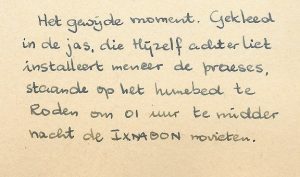 Het gewijde moment. Gekleed
in de jas, die Hijzelf achterliet
installeert meneer de praeses,
staande op het hunebed te
Roden om 01 uur te midder
nacht de IXNASON novieten.